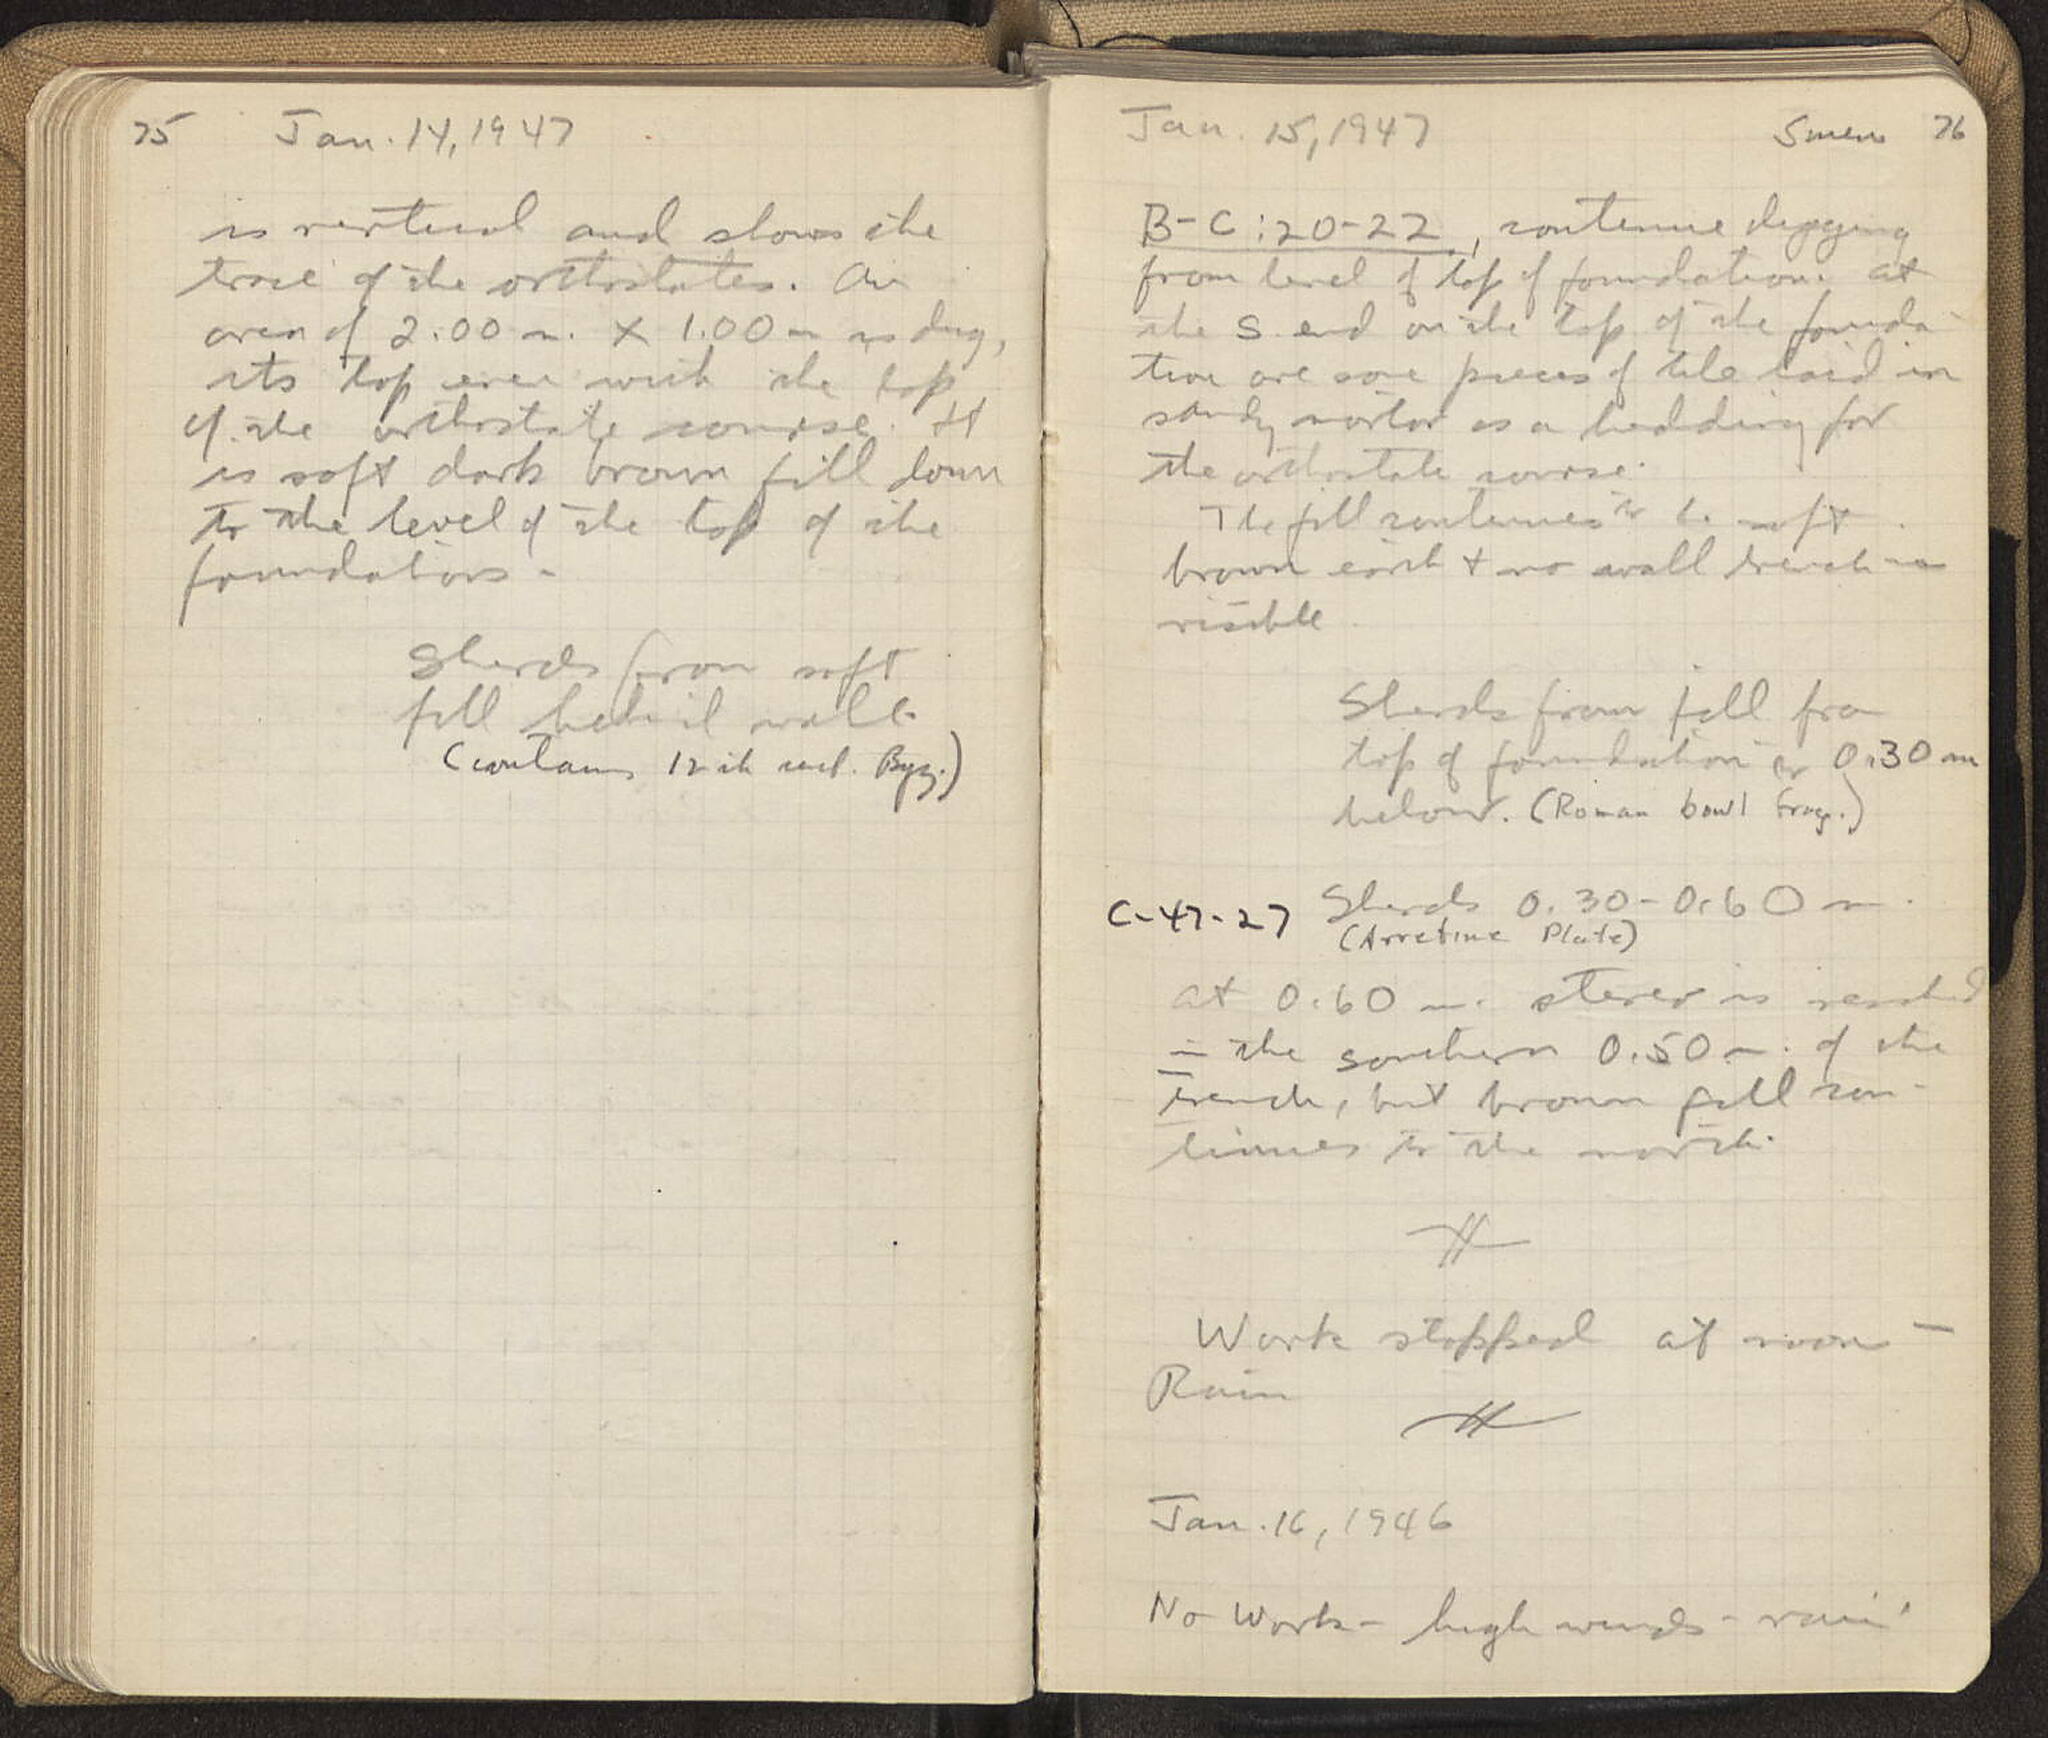 75 Jan. 14, 1947
is vertical and shows the
trace of the orthostates. An
area of 2.00 m. x 1.00 m is dug,
its top even with the top
of the orthostate course. It
is soft dark brown fill down
to the level of the top of the
foundations -
Sherds from soft
fill behind wall.
(contains 12th cent. Byz.)
Jan. 15, 1947 76
B-C:20-22, continue digging
from level of top of foundation. At
the S. end on the top of the founda-
tion are some pieces of tile laid in
sandy mortar as a bedding for
the orthostate course.
The fill continues to be soft
brown earth + no wall trench is
visible.
Sherds from fill from
top of foundation to 0.30 m
below. (Roman bowl frag.)
C-47-27 Sherds 0.30-0.60 m.
(Arretine Plate)
At 0.60 m. stereo is reached
in the southern 0.50 m. of the
trench, but brown fill con-
tinues to the north.
Work stopped at noon -
Rain
Jan. 16, 1946
No Work - high winds - rain